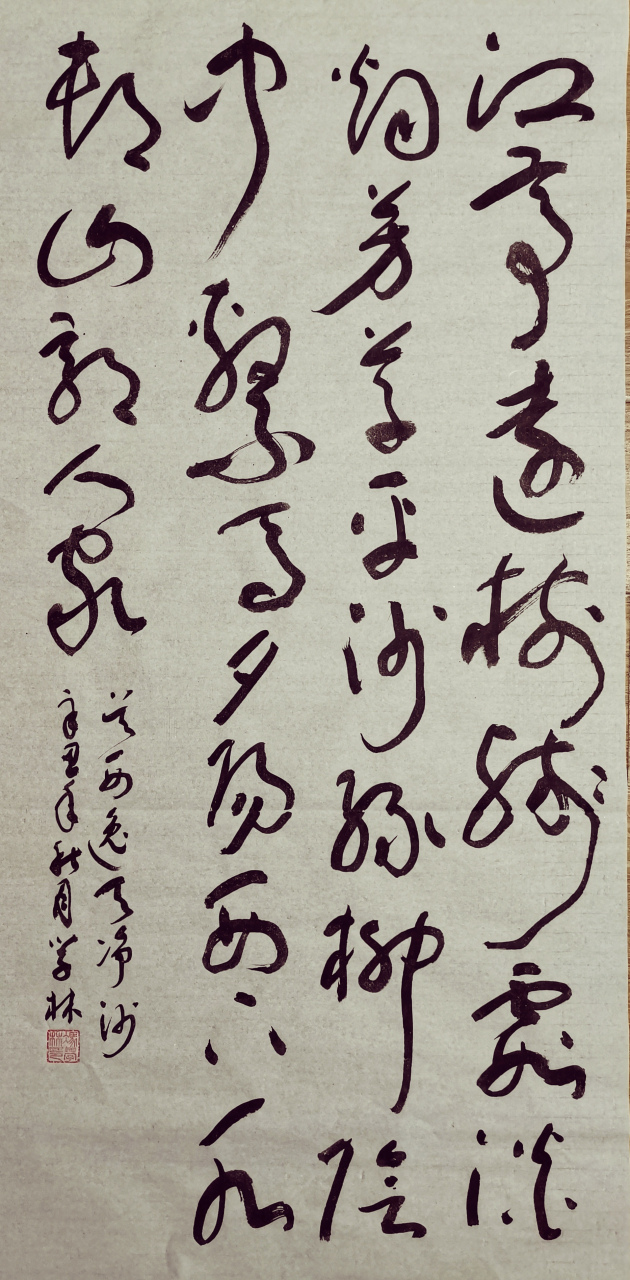 江亭遠樹殘霞淡
烟芳草平沙綠柳陰
中繫馬夕陽西下水
邨山郭人家
吴西逸天净沙
辛丑年秋月学林